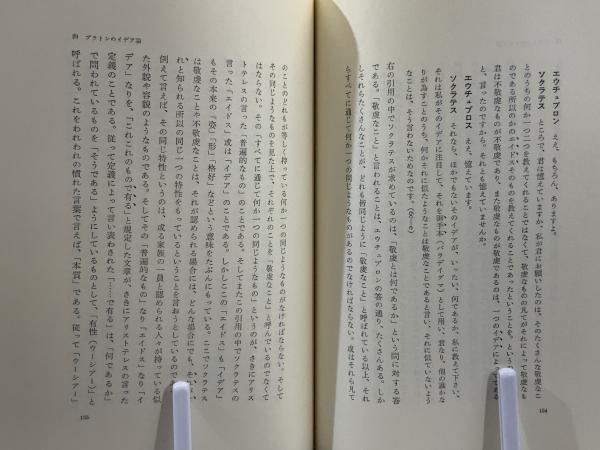 エウチュプロン　ええ、もちろん、ありますよ。
ソクラテス　ところで、君は憶えていますか、私が君にお願いしたのは、そのたくさんな敬虔なこ
とのうちの何か一つ二つを教えてくれることではなくて、敬虔なものの凡てがそれによって敬虔なも
のである所以のかのエイドスそのものを教えてくれることであったということを。という
君は不敬虔なものが不敬虔であり、また敬虔なものが敬虔であるのは、一つのイデアによ　である
と、言ったのですから。それとも憶えていませんか。
エウチュプロン　ええ　憶えています。
ソクラテス　それなら、ほかでもないそのイデアが、いったい、何であるか、私に教えて下さい、
それは私がそのイデアに注目して、それを御手本（パラデイグマ）として用い、君なり、他の誰かな
りが為すことのうち、何かそれに似たようなことは敬虔なことであると言い、それに似ていないよう
なことは、そう言わないためなのです。（6E）
右の引用の中でソクラテスが求めているのは、「敬虔とは何であるか」という問に対する答
である。「敬虔なこと」と言われることは、エウチュプロンの答の通り、たくさんある。しか
しそれらたくさんなことが、どれも皆同じように「敬虔なこと」と呼ばれている以上、それ
らすべてに通じて何か一つの同じようなものがあるのでなければならない。或はそれら凡て
154
四　プラトンのイデア論
のことのどれもが等しく持っている何か一つの同じようなものがなければならない。そして
その同じようなものを見た上で、それぞれのことを「敬虔なこと」と呼んでいるのでなくて
はならない。その「すべてに通じて何か一つの同じようなもの」というのが、さきにアリス
トテレスの言った「普遍的なもの」のことである。そしてまたこの引用の中でソクラテスの
言った「エイドス」或は「イデア」のことである。しかしここの「エイドス」も「イデア」
もその本来の「姿」「形」「格好」などという意味をたぶんにもっている。ここでソクラテス
は敬虔なことや不敬虔なことは、それが認められる場合には、どんな場合にでも、そ
れと知られる所以の同じ一つの特性をもっているということを言おうとしているので
例えて言えば、その同じ特性というのは、或る家族の一員と認められる人々が持っている似
た外貌や容貌のようなものである。そしてその「普遍的なもの」なり「エイドス」なり「イ
デア」なりを、「これこれのもので有る」と規定した文章が、さきにアリストテレスの言った
定義のことである。従って定義によって言い表わされた「……で有る」は、「何であるか」
で問われているものを「そうである」ようにしているものとして、「有性（ウーシアー）」と
呼ばれる。これをわれわれの慣れた言葉で言えば、「本質」である。従って「ウーシアー」
155